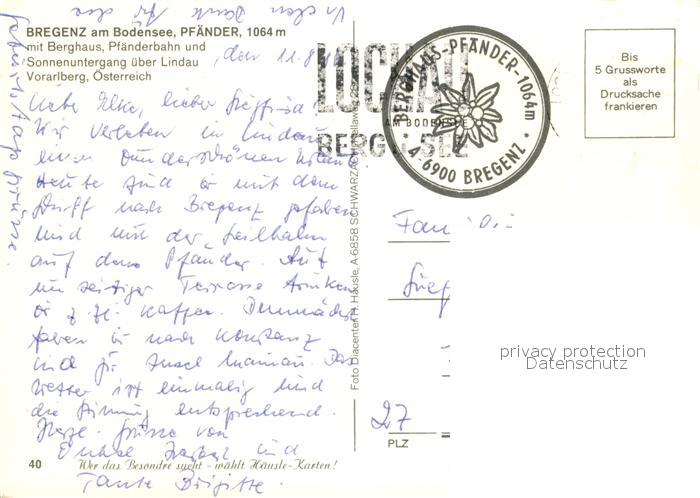 Vielen Dank für die
Geburtstagsgrüsse.
BREGENZ am Bodensee, PFÄNDER, 1064 m
mit Berghaus, Pfänderbahn und
Sonnenuntergang über Lindau
Vorarlberg, Österreich
, den 11.8.
LOCHAU
AM BODENSEE
BERG SEE
BERGHAUS-PFÄNDER-1064m
A-6900 BREGENZ
Bis
5 Grussworte
als
Drucksache
frankieren
Liebe Elke, lieber Siegfried
Wir verleben in Lindau
einen wunderschönen Urlaub.
Heute sind wir mit dem
Schiff nach Bregenz gefahren
und mit der Seilbahn
auf dem Pfänder. Auf
Terrasse trinken
wir z. Zt. Kaffee. Demnächst
fahren wir nach Konstanz
und zur Insel Mainau. Das
Wetter ist einmalig und
die Stimmung entsprechend.
Herzl. Grüsse von
Onkel Herbert und
Tante Brigitte.
Foto Diacenter H. Häusle, A-6858 SCHWARZACH
Fam
Sieg
27
PLZ
privacy protection
Datenschutz
40
Wer das Besondre sucht - wählt Häusle-Karten!